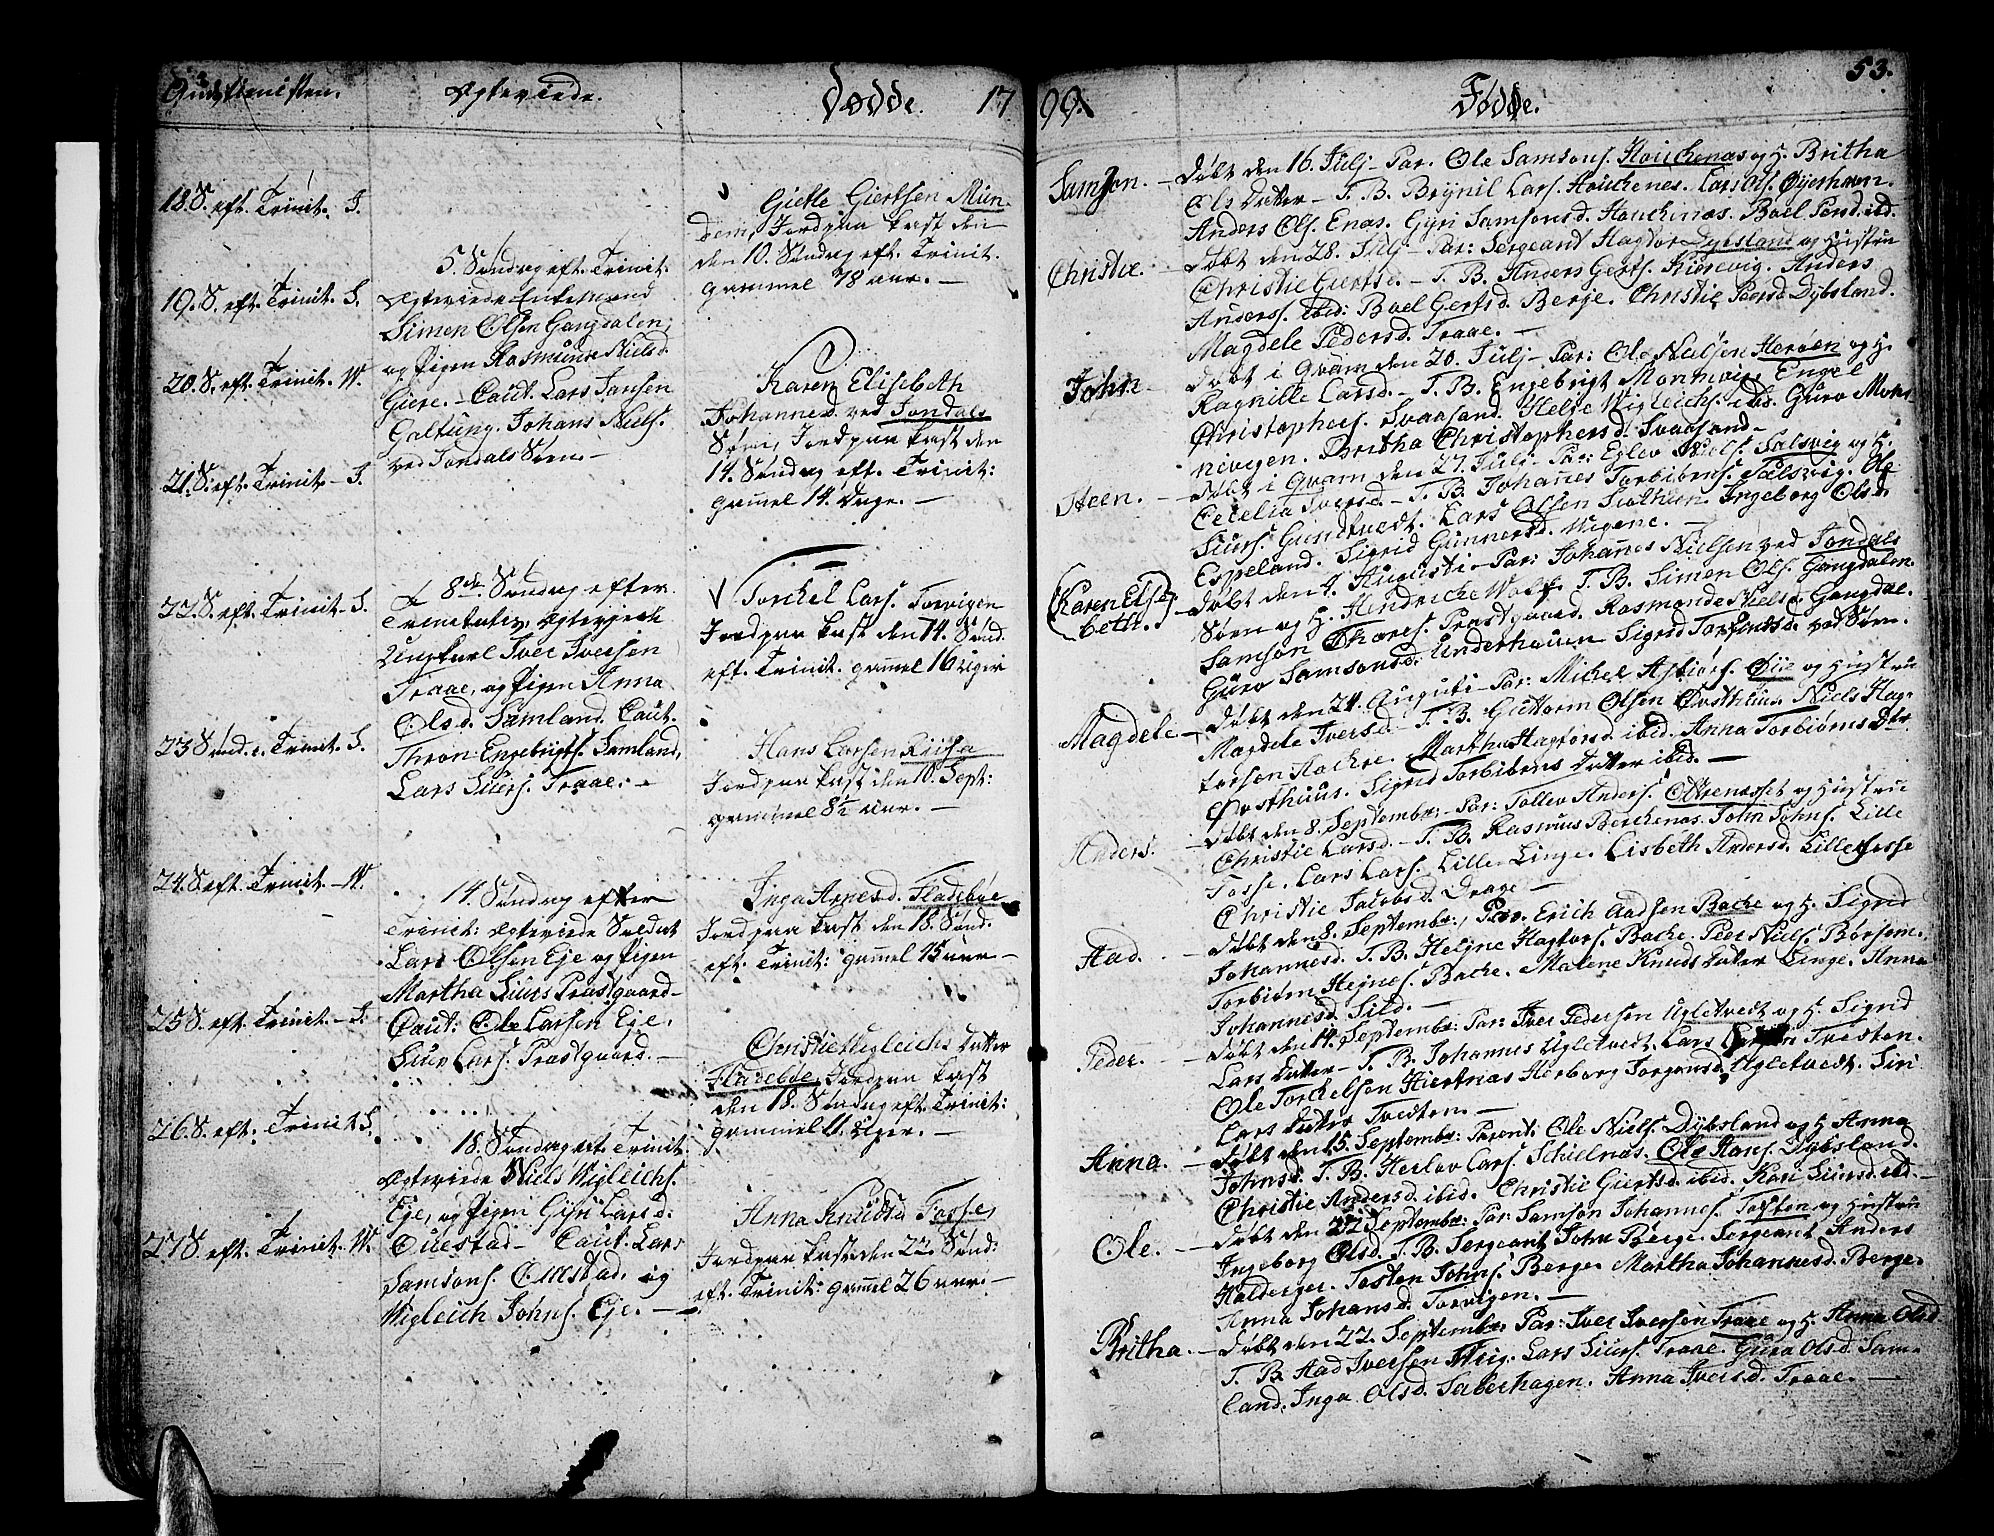 Gudstienisten.
Egteviede.
Dødde. 17
99.
Fødde.
53.
18. S. eft. Trinit. J.
19. S. eft. Trinit. S.
20. S. eft. Trinit. W.
21. S. eft. Trinit. J.
22. S. eft. Trinit. S.
23 Sønd. e. Trinit. S.
24. S. eft. Trinit. W.
25 S. eft. Trinit. J.
26 S. eft. Trinit. S.
27 S. eft. Trinit. W.
5. Søndag eft. Trinit.
Egteviede Enkemand
Simen Olsen Gangdalen,
og Pigen Rasmunde Nielsd.
Giere. Caut. Lars Jansen
Galtung. Johans Niels.
ved Jondals Søen.
8de Søndag efter
Trinitatis, Egteviede
Ungkarl Iver Iversen
Traae, og Pigen Anna
Olsd. Samland. Caut.
Thron Engebrigts. Samland,
Lars Siurs. Traae.
14. Søndag efter
Trinit: Egteviede Soldat
Lars Olsen Eje og Pigen
Martha Siurs Præstgaard
Caut: Ole Larsen Eje,
Siur Lars. Præstgaard.
18. Søndag eft. Trinit.
Egteviede Niels Wigleichs.
Eje, og Pigen Gyri Larsd:
Questad. Caut. Lars
Samsons. Qvestad, og
Wigleich Johns. Eje.
Giette Giertsen Mun-
dem, Jordpaakast den
den 10. Søndag eft. Trinit.
gammel 78 aar.
Karen Elisebeth
Johannesd. ved Jondals
Søen, Jordpaakast den
14. Søndag eft. Trinit:
gammel 14 Dage.
Torchel Lars. Torvigen
Jordpaakast den 14. Sønd.
eft. Trinit. gammel 16 uger
Hans Larsen Riisa
Jordpaakast den 10. Sept:
gammel 8½ aar.
Inga Arnesd. Fladebøe
Jordpaakast den 18. Sønd.
eft. Trinit: gammel 75 aar
Christie Wigleichs Datter
Fladebøe, Jordpaakast
den 18. Søndag eft. Trinit:
gammel 11. Uger.
Anna Knudsd. Fosse,
Jordpaakast den 22. Sønd:
eft. Trinit: gammel 26 aar.
Samson. Døbt den 16. Julj - Par. Ole Samsons. Houchenæs og H. Britha
Ols Datter - T. B. Brynil Lars. Houchenes. Lars Ols. Øyerhavn.
Anders Ols. Enæs. Gyri Samsonsd. Houchenæs. Boel Persd. ibd.
Christie. Døbt den 28. Julj - Par: Sergeant Hagtor Dybsland og Hustru
Christie Giertsd. - T. B. Anders Gerts. Kierevig. Anders
Anders. ibid: Boel Gertsd. Berje. Christie Peersd. Dybsland.
Magdele Pedersd. Traae.
John Døbt i Qvam den 20. Julj - Par: Ole Nielsen Herøen og H.
Ragnille Larsd. T. B. Engebrigt Mommevig. Engel
Christophers. Svaasand. Helje Wigleichs. ibid. Guro
nivigen. Britha Christophersd. Svaasand.
Steen. Døbt i Qvam den 27. Julj - Par: Eslev Siuls. Salsvig og H.
Cecelia Iversd. T. B. Johanes Torbiøns. Salsvig. Ole
Siurs. Gundtvedt. Lars Olsen Siothun. Ingeborg Olsd.
Espeland. Sigrid Gunnersd. Wigene.
(Karen Else-
beth.) Døbt den 4. Augusti - Par: Johanes Nielsen ved Jondals
Søen og H. Hindriche Wolf. T. B. Simen Ols. Gangdalen.
Samson Thores. Præstgaard. Rasmonde Nielsd. Gangdal.
Guro Samsonsd. Underhaugen Sigrid Torstensd. ved Søen.
Magdele - Døbt den 24. Augusti - Par: Michel Asbiørs. Øye og Hustru
Magdele Iversd. T. B. Guttorm Olsen Østhuus. Niels Hag-
torsen Aachre. Martha Hagtorsd. ibid. Anna Torbiørns Dtr
Østhuus. Sigrid Torbiøns Datter ibid.
Anders. Døbt den 8. Septembr: Par: Tollev Anders. Othrenæsset og Hustru
Christie Larsd. T. B. Rasmus Berchenæs. John Johns. Lille
Fosse. Lars Lars. Lille Linge. Lisbeth Andersd. Lillefosse
Christie Jacobsd. Drage
Aad. Døbt den 8. Septembr: Par. Erich Aadsen Bache og H. Sigrid
Johannesd. T. B. Helgne Hagtors. Bache. Peer Niels. Børsem.
Torbiørn Hejnes. Bache. Malene Knuds Datter Linge. Anna
Johannesd. Sild.
Peder. Døbt den 14. Septembr. Par: Iver Pedersen Ugletvedt og H. Sigrid
Lars Datter - T. B. Johannes Ugletvedt. Lars Larsen Tveisten.
Ole Torchelsen Hiertnæs Herborg Jorgensd. Ugletvedt. Siri
Lars Datter Tveisten.
Anna. Døbt den 15. Septembr: Parent: Ole Niels. Dybsland og H Anna
Johnsd. T. B. Herlov Lars. Schielnæs. Ole Hans. Dybsland.
Christie Andersd. ibid. Christie Giertsd. ibid. Kari Siursd. ibd.
Ole. Døbt den 22 Septembr: Par: Samson Johannes. Tosten og Hustru
Ingeborg Olsd. T. B. Sergeant John Berge. Sergeant Anders
Halderger. Tosten Johns. Berge Martha Johannesd. Berge.
Anna Johansd. Torvigen.
Britha. Døbt den 22. Septembr Par: Iver Iversen Traae og H. Anna Olsd
T. B. Aad Iversen Wiig. Lars Siurs. Traae. Gura Olsd. Sam-
land. Inga Olsd. Saberhagen. Anna Iversd. Traae.